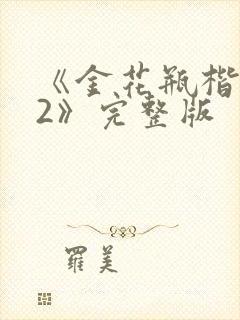 《金花瓶楷
2》完整版
羅美